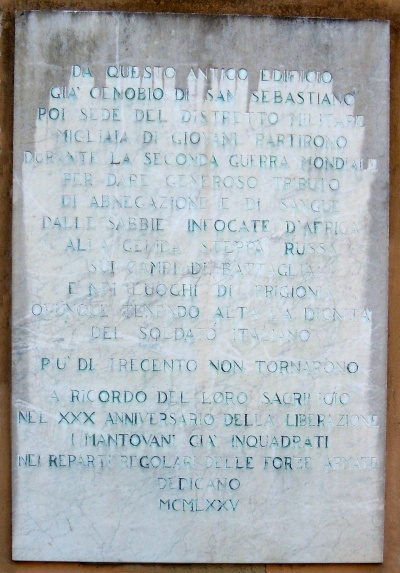 DA QUESTO ANTICO EDIFICIO
GIA' CENOBIO DI SAN SEBASTIANO
POI SEDE DEL DISTRETTO MILITARE
MIGLIAIA DI GIOVANI PARTIRONO
DURANTE LA SECONDA GUERRA MONDIALE
PER DARE GENEROSO TRIBUTO
DI ABNEGAZIONE E DI SANGUE
DALLE SABBIE INFOCATE D'AFRICA
ALLA GELIDA STEPPA RUSSA
SUI CAMPI DI BATTAGLIA
E NEI LUOGHI DI PRIGIONIA
OVUNQUE TENENDO ALTA LA DIGNITA
DEL SOLDATO ITALIANO
PIU' DI TRECENTO NON TORNARONO
A RICORDO DEL LORO SACRIFICIO
NEL XXX ANNIVERSARIO DELLA LIBERAZIONE
I MANTOVANI GIA' INQUADRATI
NEI REPARTI REGOLARI DELLE FORZE ARMATE
DEDICANO
MCMLXXV